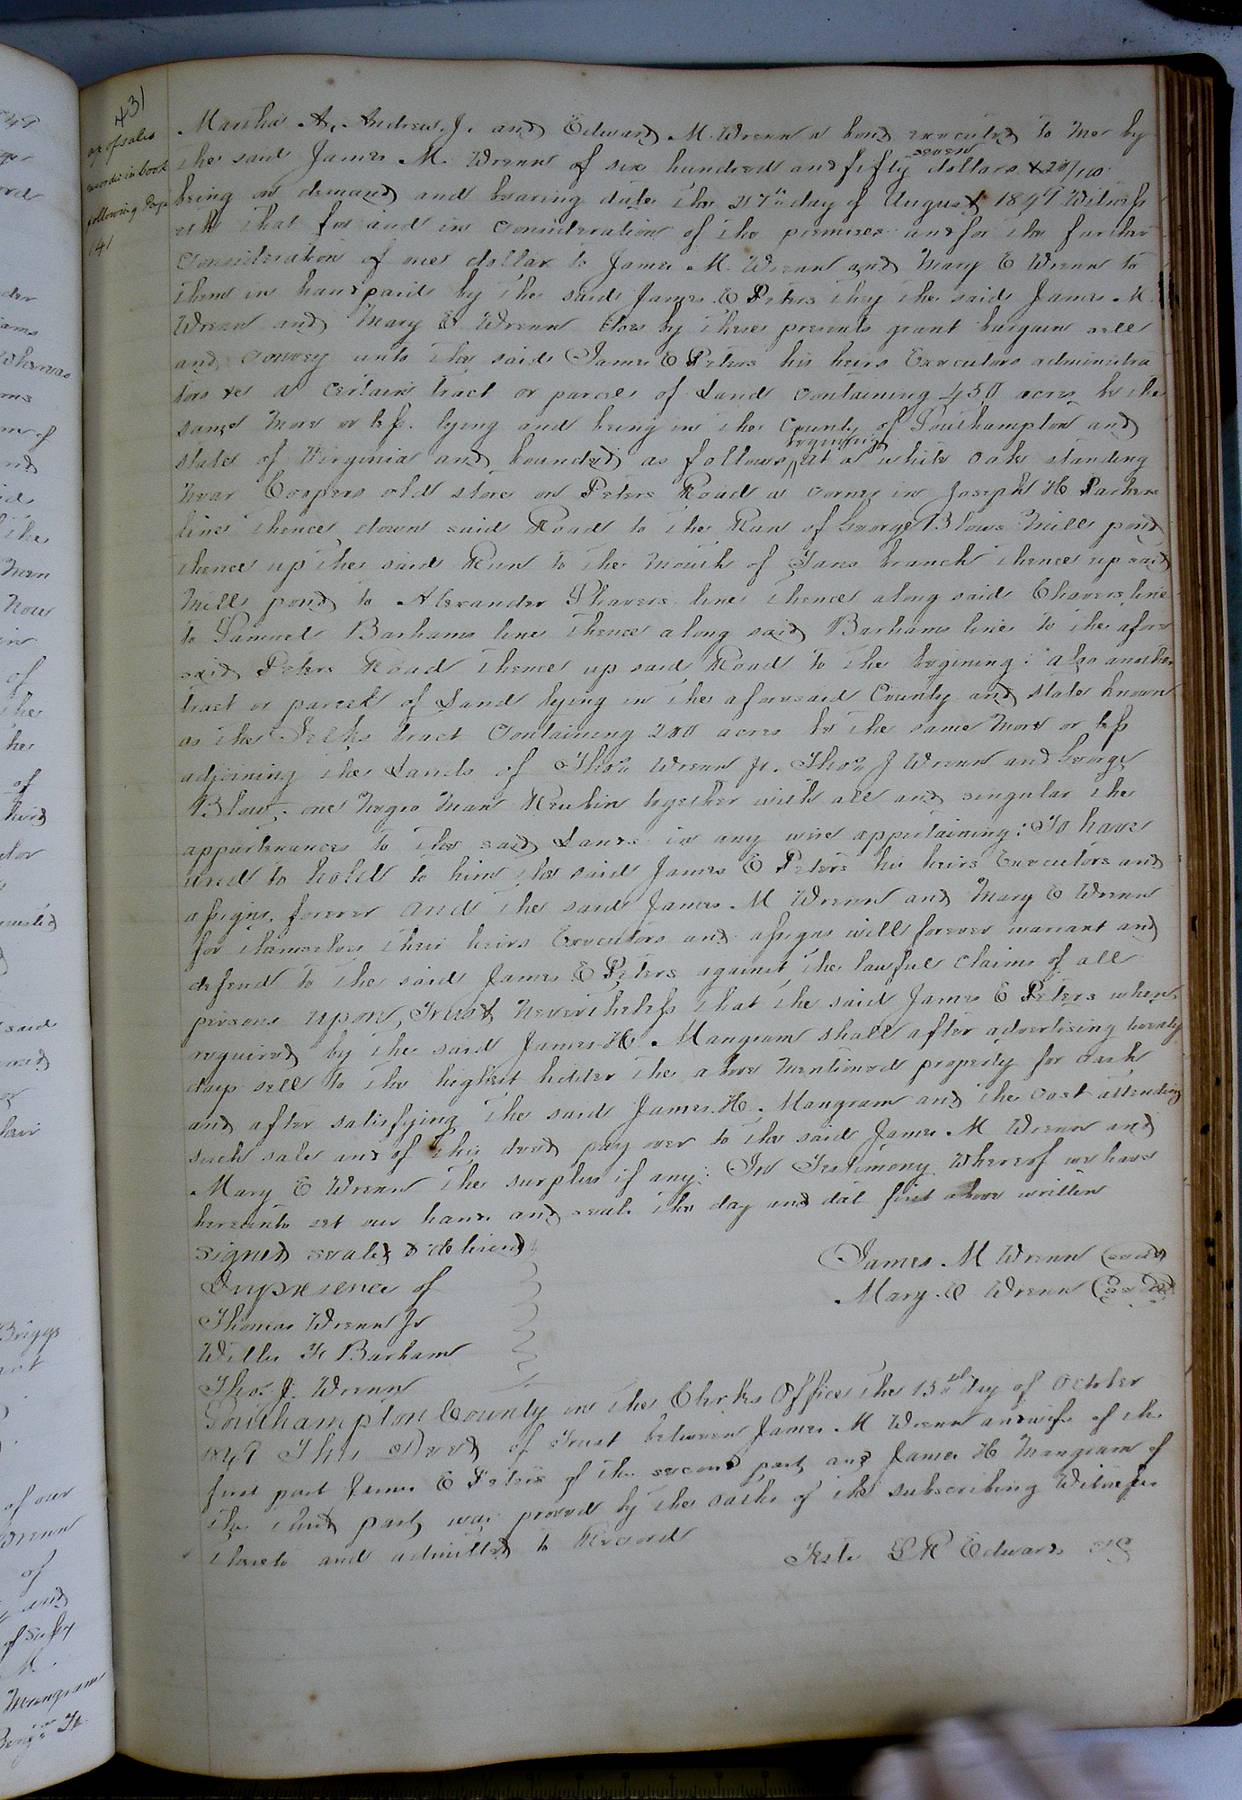 431
of sales
recorded in book
following Page
141
Martha A. Andrews Jr. and Edward M. Wrenn a bond executed to me by
the said James M. Wrenn of six hundred and fifty seven dollars & 20/100
being on demand and bearing date the 27th day of August 1849 Witness
eth that for and in consideration of the premises and for the further
consideration of one dollar to James M. Wrenn and Mary E Wrenn to
them in hand paid by the said James E Peters they the said James M.
Wrenn and Mary E Wrenn does by these presents grant bargain sell
and convey unto the said James E Peters his heirs Executors administra
tors &c a certain tract or parcel of Land containing 450 acres be the
same more or less. lying and being in the County of Southampton and
state of Virginia and bounded as follows, begining at a white oak standing
near Coopers old store on Peters Road a corner in Joseph H Parkers
line thence down said Road to the Run of George Blows Mill pond
thence up the said Run to the mouth of branch thence up said
Mill pond to Alexander Chavers line thence along said Chavers line
to Samuel Barhams line thence along said Barhams line to the afore
said Peters Road thence up said Road to the begining: also another
tract or parcel of Land lying in the aforesaid County and state known
as the tract containing 200 acres be the same more or less
adjoining the Lands of Thos. Wrenn Jr. Thos. J Wrenn and George
Blow, one Negro Man Reubin together with all and singular the
appurtenances to the said Lands in any wise appertaining: To have
and to hold to him the said James E Peters his heirs Executors and
assigns forever and the said James M Wrenn and Mary E Wrenn
for themselves their heirs Executors and assigns will forever warrant and
defend to the said James E Peters against the lawful claims of all
persons upon, Trust Nevertheless that the said James E Peters when
required by the said James H. Mangram shall after advertising twenty
days sell to the highest bidder the above mentioned property for cash
and after satisfying the said James H. Mangram and the cost attending
such sale and of this deed pay over to the said James M Wrenn and
Mary E Wrenn the surplus if any: In Testimony Whereof we have
hereunto set our hands and seals the day and dat first above written
signed sealed & delivered
In presence of
Thomas Wrenn Jr
Willis F Barham
Thos. J. Wrenn
James M Wrenn (seal)
Mary E Wrenn (seal)
Southampton County in the Clerks Office the 15th day of October
1849 This Deed of Trust between James M Wrenn and wife of the
first part James E Peters of the second part and James H Mangram of
the third part, was proved by the oaths of the subscribing Witnesses
thereto and admitted to Record
Teste L R Edwards CC